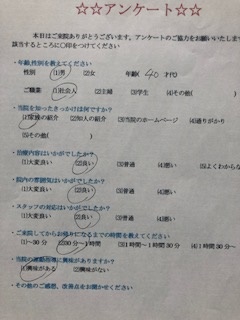 ☆☆アンケート☆☆
本日はご来院ありがとうございます。アンケートのご協力をお願いいたしま
該当するところに○印をつけてください
・年齢,性別を教えてください
性別 (1)男 (2)女 年齢( 40 才代)
ご職業 (1)社会人 (2)主婦 (3)学生 (4)その他(
・当院を知ったきっかけは何ですか?
(1)家族の紹介 (2)知人の紹介 (3)当院のホームページ (4)通りがかり
(5)その他( )
・治療内容はいかがでしたか?
(1)大変良い (2)良い (3)普通 (4)悪い (5)よくわからな
・院内の雰囲気はいかがでしたか?
(1)大変良い (2)良い (3)普通 (4)悪い
・スタッフの対応はいかがでしたか?
(1)大変良い (2)良い (3)普通 (4)悪い
・ご来院してからお帰りになるまでの時間を教えてください
(1)~30分 (2)30分~1時間 (3)1時間~1時間30分 (4)1時間30分
・当院の運動指導に興味がありますか?
(1)興味がある (2)興味がない
・その他のご感想、改善点をお聞かせください